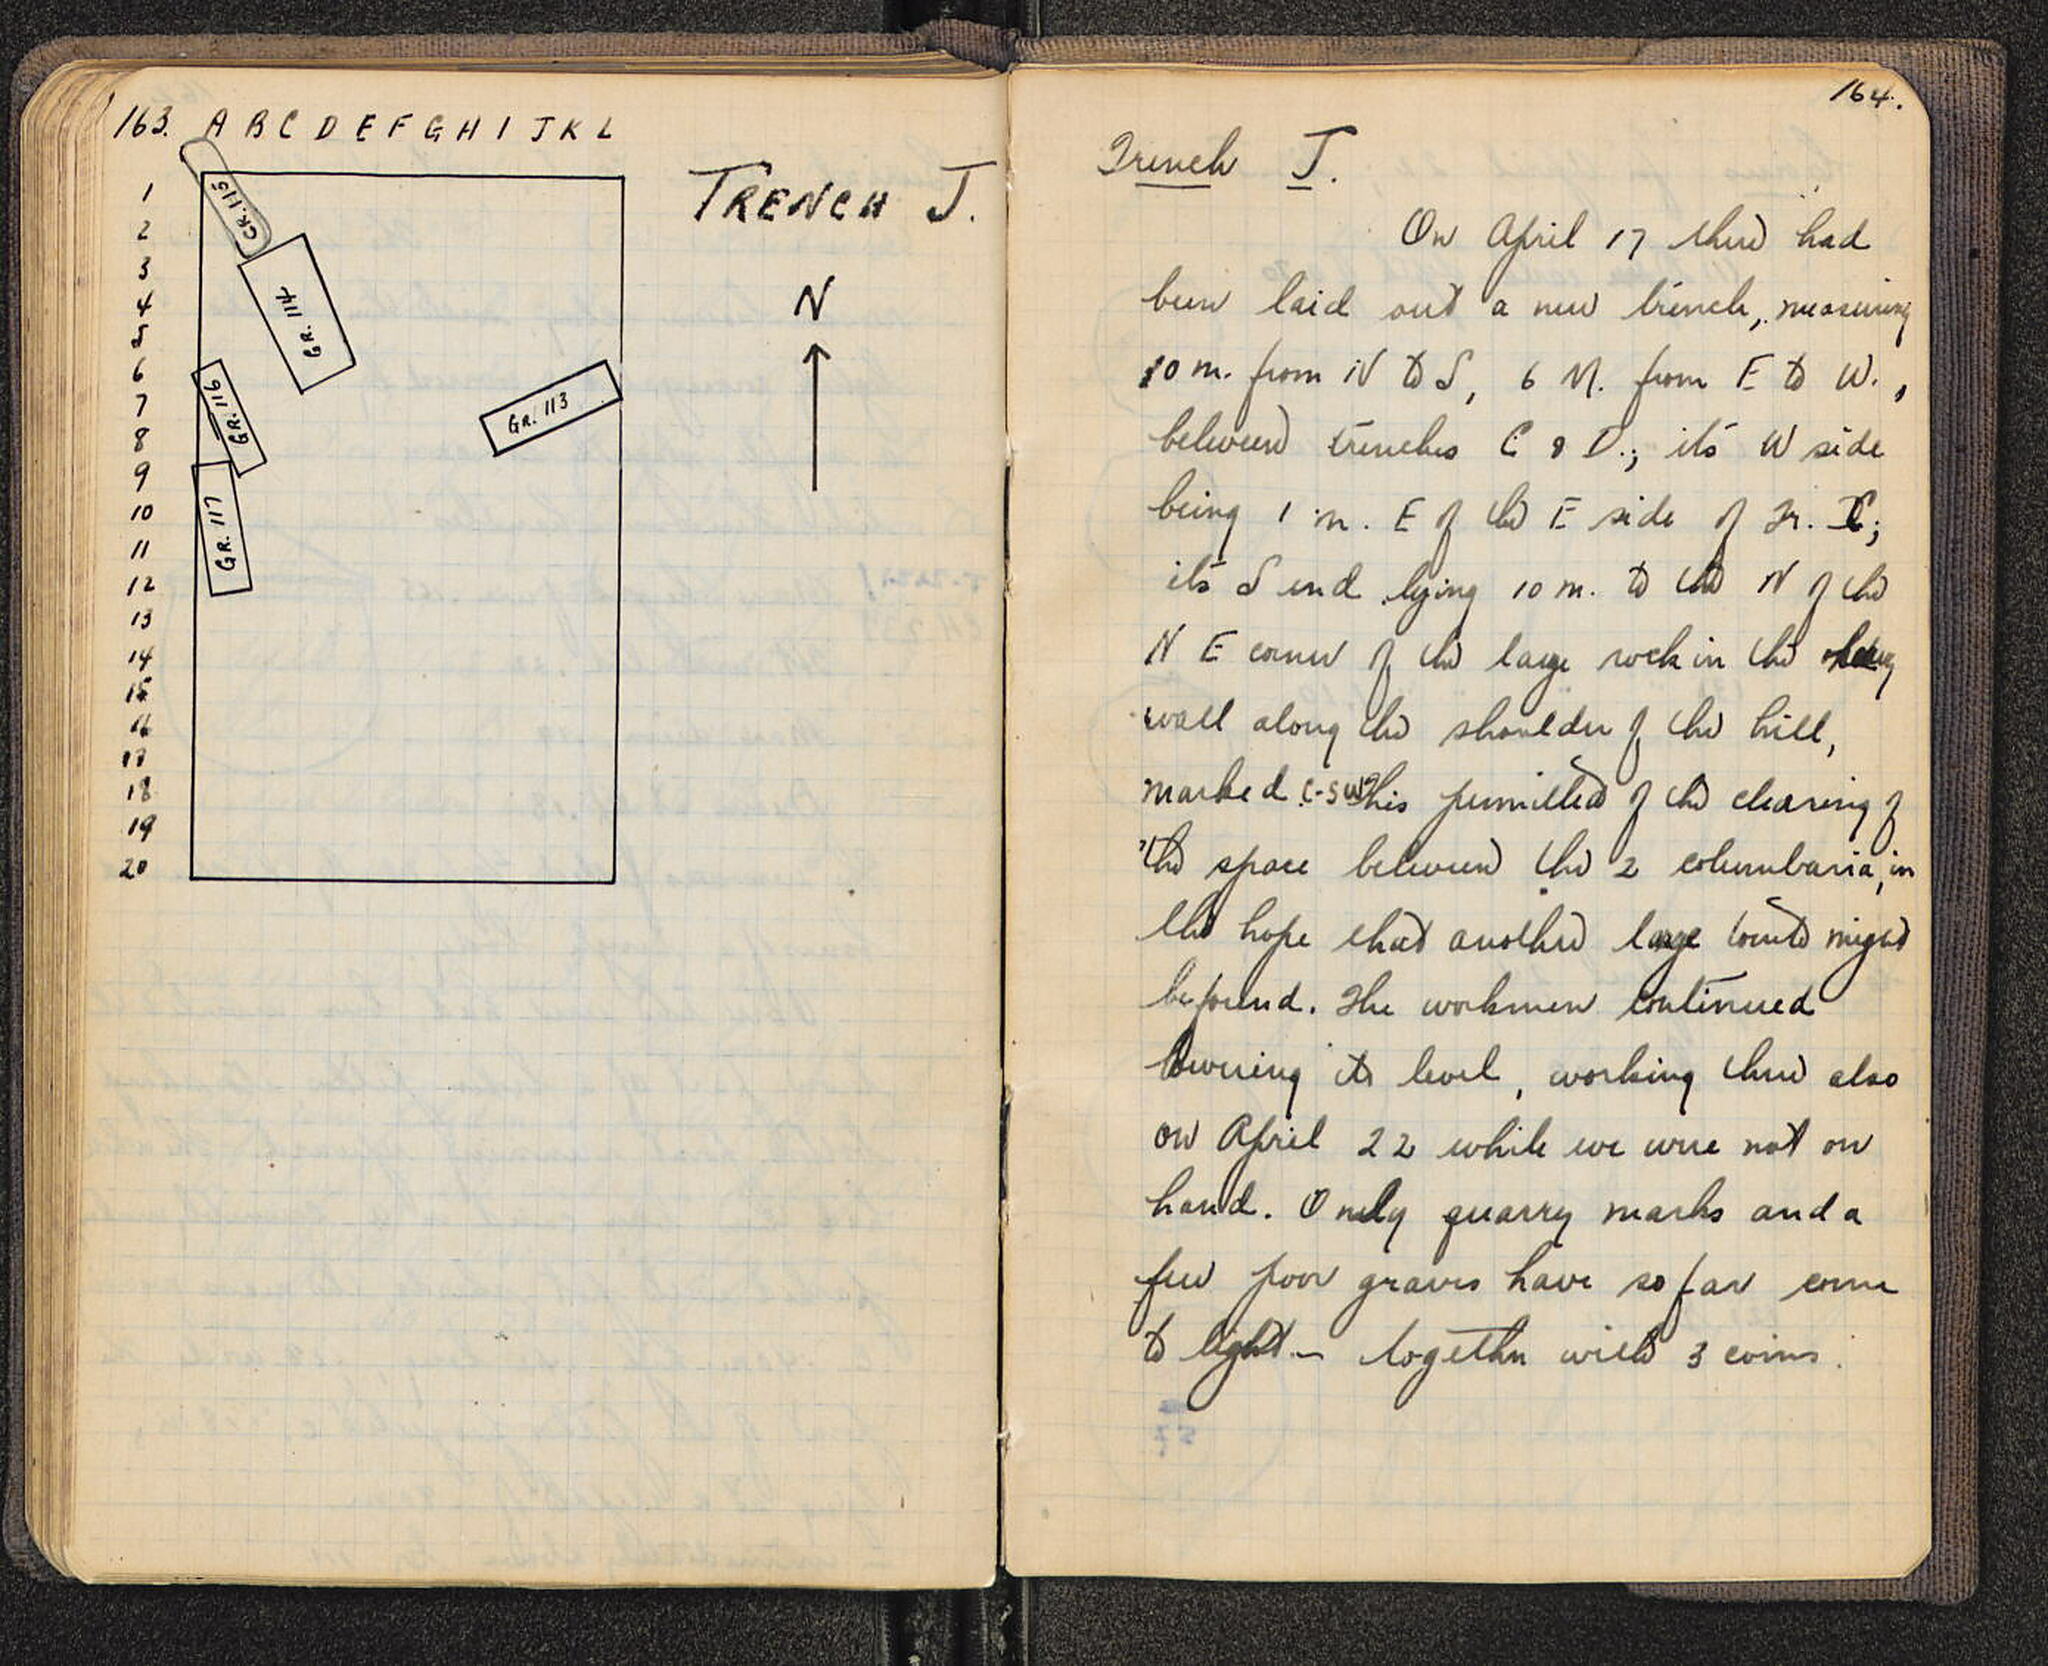 163. A B C D E F G H I J K L
TRENCH J.
N
1
2
3
4
5
6
7
8
9
10
11
12
13
14
15
16
17
18
19
20
GR. 115
GR. 114
GR. 116
GR. 113
GR. 117
164.
Trench J.
On April 17 there had
been laid out a new trench, measuring
10 m. from N to S, 6 M. from E to W.,
between trenches C & D.; its W side
being 1 m. E of the E side of Tr. C;
its S end lying 10 m. to the N of the
N E corner of the large rock in the
wall along the shoulder of the hill,
marked C-SW. This permitted of the clearing of
the space between the 2 columbaria, in
the hope that another large tomb might
be found. The workmen continued
lowering its level, working there also
on April 22 while we were not on
hand. Only quarry marks and a
few poor graves have so far come
to light — together with 3 coins.